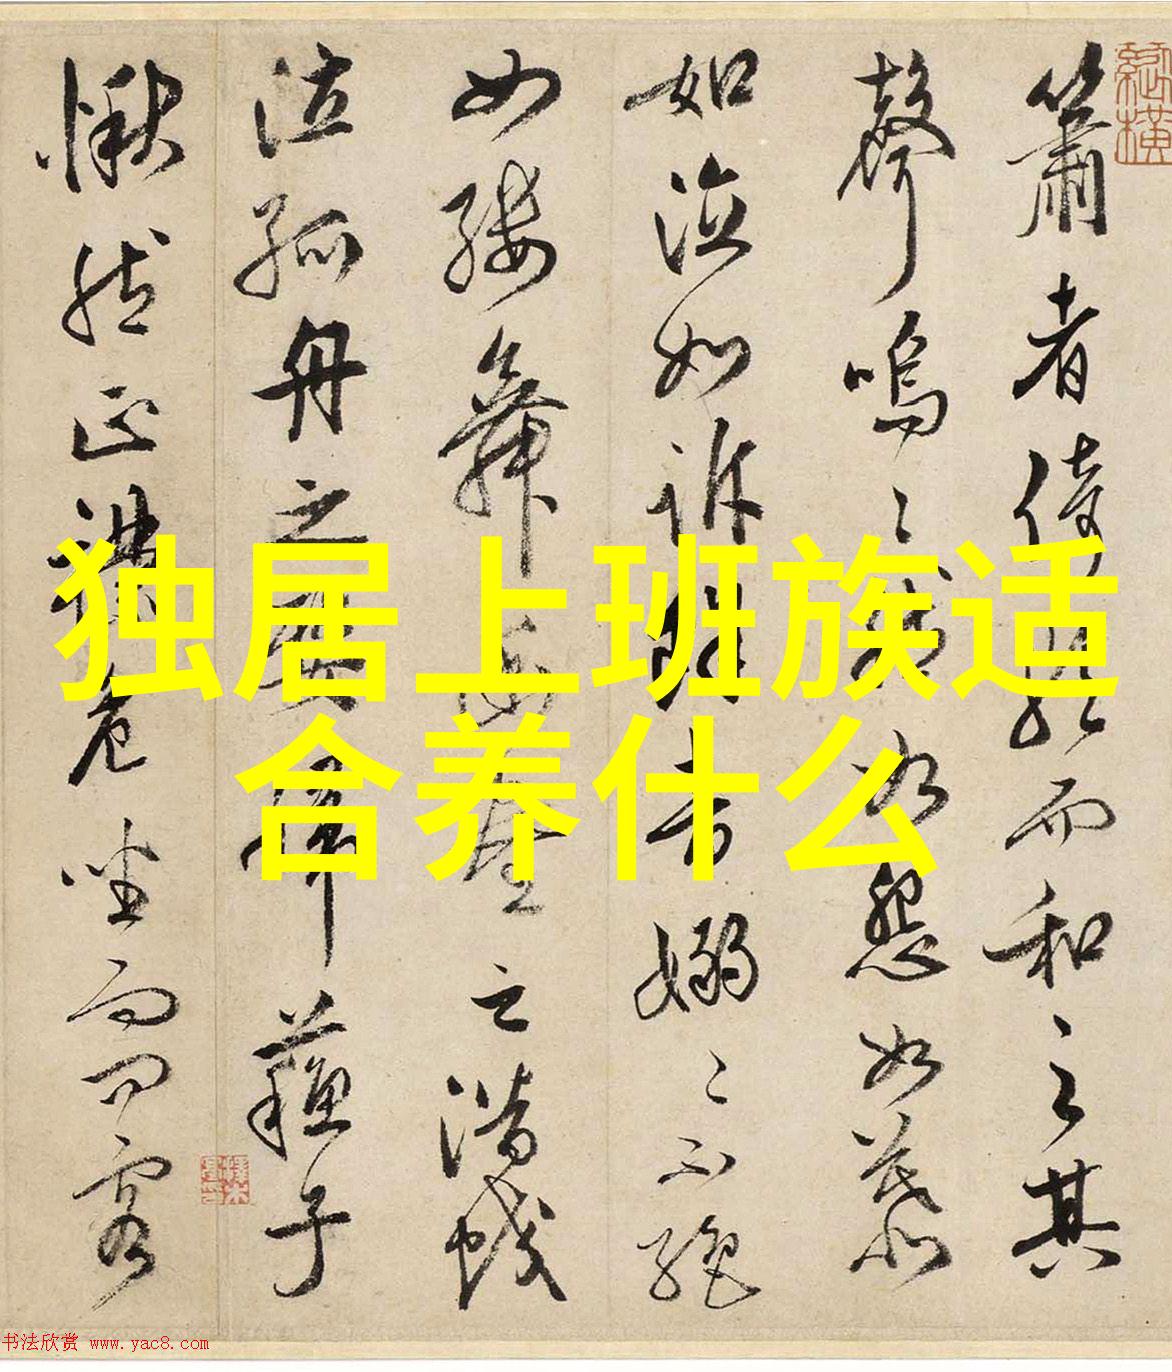 独居上班族适
合养什么
簫者倚歌而和之其
聲嗚々然如怨如慕
如泣如訴餘音嫋々不絕
如縷舞幽壑之潛蛟
泣孤舟之嫠婦蘇子
愀然正襟危坐而問客
书法欣赏 www.yac8.com